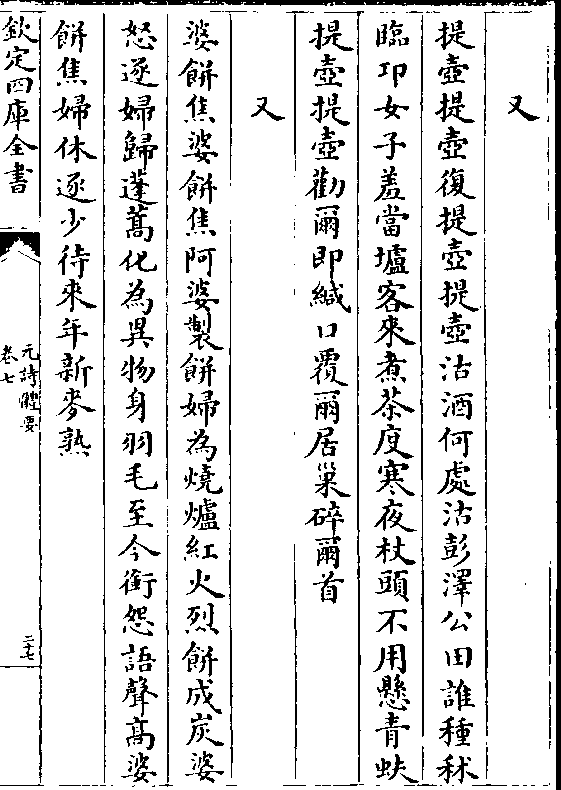 又
提壺提壺復提壺提壺沽酒何處沽彭澤公田誰種秫
臨邛女子羞當壚客來煮茶度寒夜杖頭不用懸青蚨
提壺提壺勸爾即緘口覆爾居巢碎爾首
又
婆餅焦婆餅焦阿婆製餅婦為燒爐紅火烈餅成炭婆
怒逐婦歸蓬蒿化為異物身羽毛至今銜怨語聲高婆
餅焦婦休逐少待來年新麥熟
欽定四庫全書
元詩體要
卷七
二七